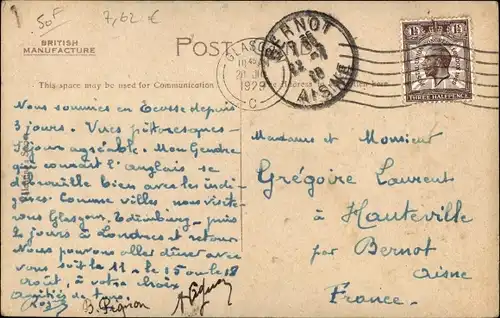 50F
7,62 €
BRITISH
MANUFACTURE
POST
This space may be used for Communication
Address
here.
GLASGOW
1929
C
BERNOT
AISNE
1½
POSTAGE
THREE HALFPENCE
Nous sommes en Ecosse depuis
3 jours. Vues pittoresques-
Séjour agréable. Mon Gendre
qui connait l'anglais se
débrouille bien avec les indi-
gènes. Comme villes nous visite-
rons Glasgow. Edimburg - puis
2 jours à Londres et retour
Nous pouvons aller dîner avec
vous soit le 11 - le 15 ou le 18
août, à votre choix
amitiés de tous.
B. Pegnon
Madame et Monsieur
Grégoire Laurent
à Hauteville
par Bernot
Aisne
France.